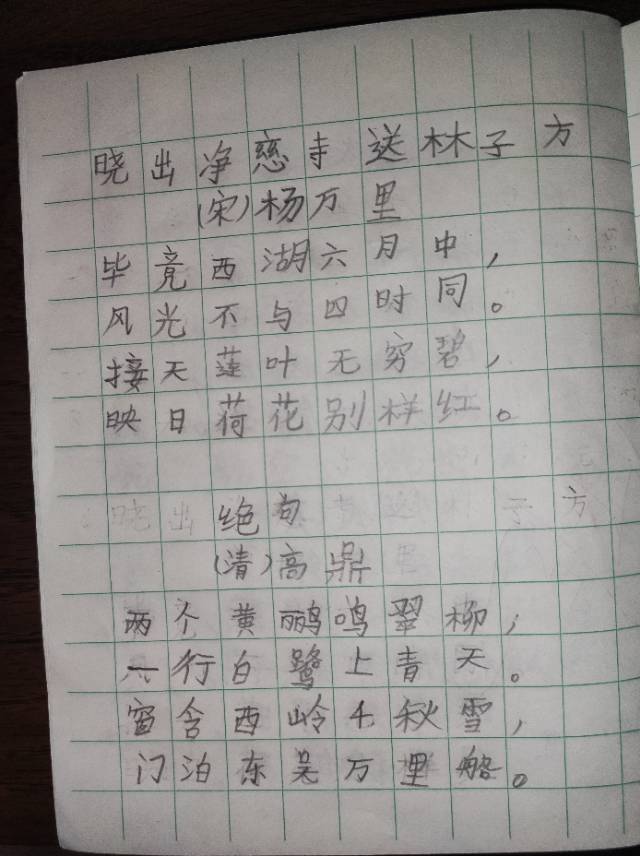 晓出净慈寺送林子方
(宋)杨万里
毕竟西湖六月中，
风光不与四时同。
接天莲叶无穷碧，
映日荷花别样红。
绝句
(清)高鼎
两个黄鹂鸣翠柳，
一行白鹭上青天。
窗含西岭千秋雪，
门泊东吴万里船。